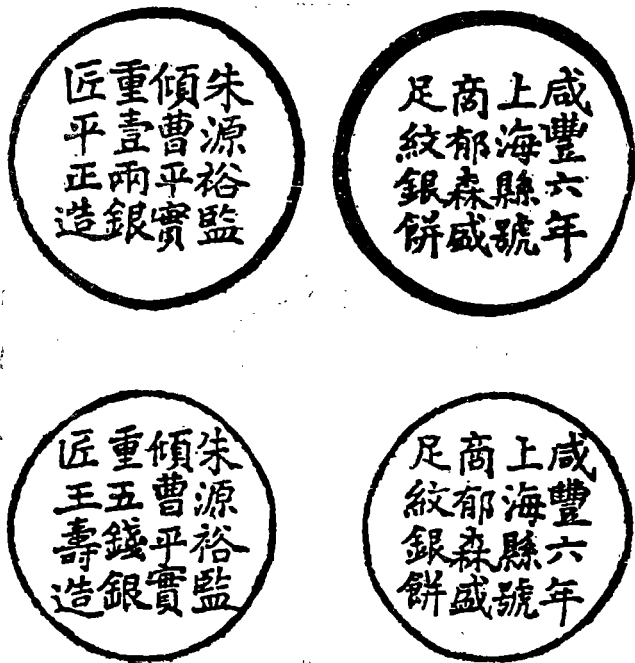 咸豐六年
上海縣號
商郁森盛
足紋銀餅
朱源裕監
傾曹平實
重壹兩銀
匠平正造
咸豐六年
上海縣號
商郁森盛
足紋銀餅
朱源裕監
傾曹平實
重五錢銀
匠王壽造